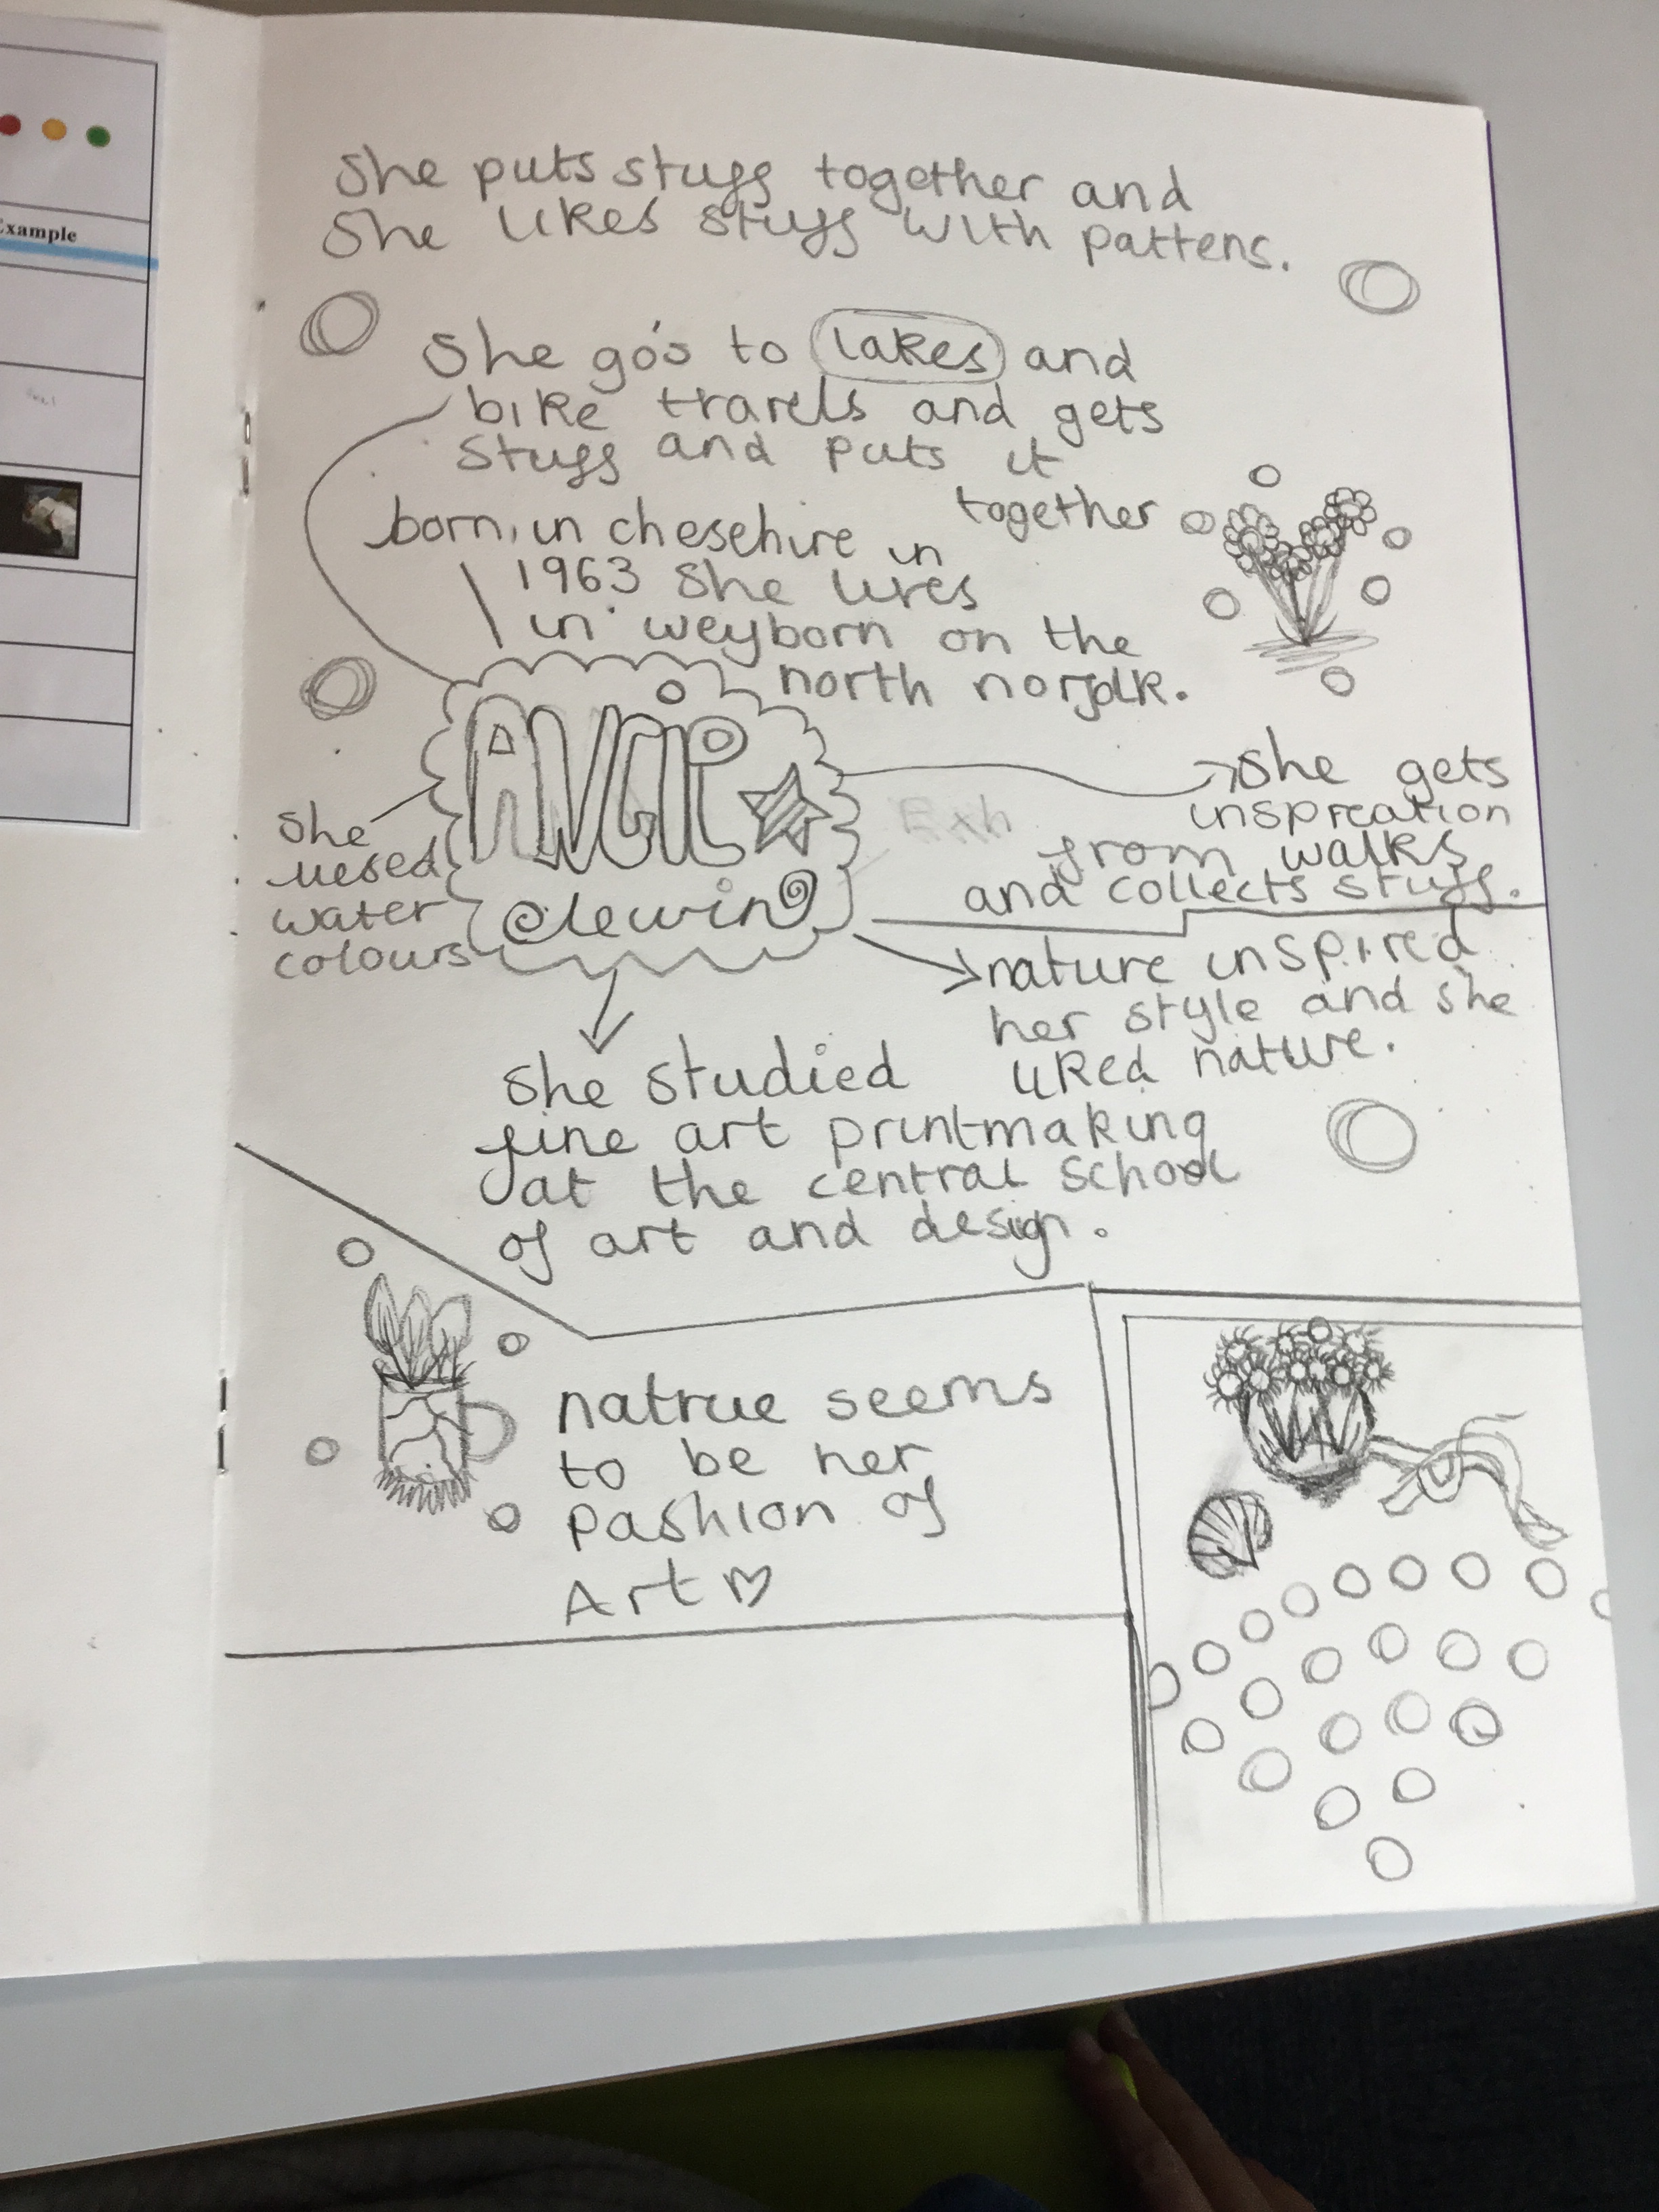 Example
She puts stuff together and
She likes stuff with pattens.
She go's to lakes and
bike travels and gets
stuff and puts it
together
born in chesehire in
1963 She lives
in weyborn on the
north norfolk.
ANGIE
lewin
she
uesed
water
colours
She gets
inspreation
from walks
and collects stuff.
Exh
nature inspired
her style and she
liked nature.
She studied
fine art printmaking
at the central school
of art and design.
natrue seems
to be her
pashion of
Art